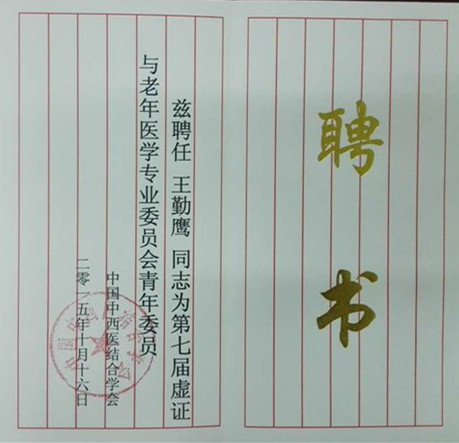 聘书
兹聘任 王勤鹰 同志为第七届虚证
与老年医学专业委员会青年委员
中国中西医结合学会
二零一五年十月十六日